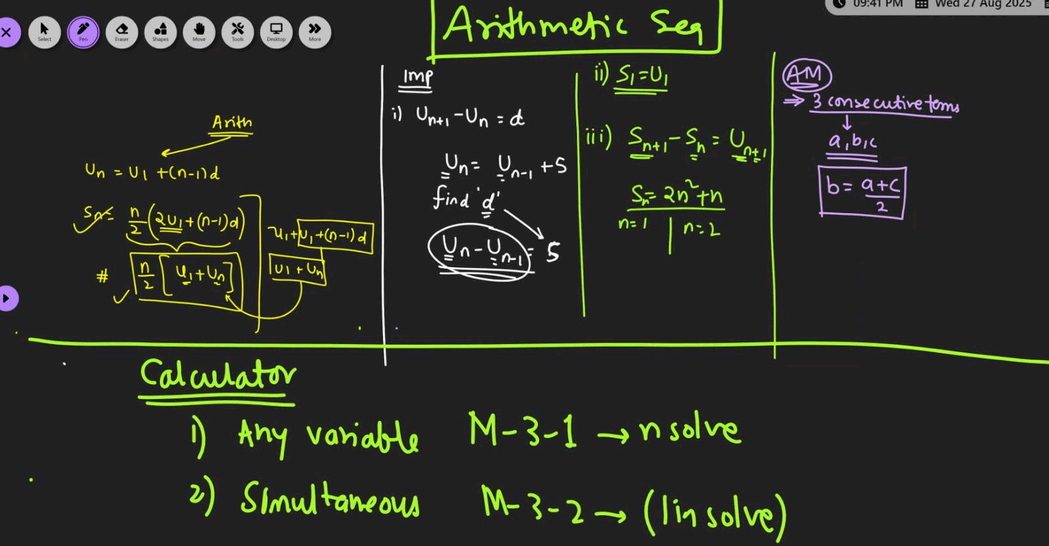 09:41 PM Wed 27 Aug 2025
Select Pen Eraser Shapes Move Tools Desktop More
Arithmetic Seq
Arith
Un = U1 + (n-1)d
Sn = n/2 (2U1 + (n-1)d)
# n/2 [U1 + Un]
U1 + U1 + (n-1)d
U1 + Un
Imp
i) Un+1 - Un = d
Un = Un-1 + 5
find 'd'
Un - Un-1 = 5
ii) S1 = U1
iii) Sn+1 - Sn = Un+1
Sn = 2n² + n
n=1 | n=2
AM
⇒ 3 consecutive terms
↓
a, b, c
b = a+c/2
Calculator
1) Any variable M-3-1 → n solve
2) Simultaneous M-3-2 → (lin solve)